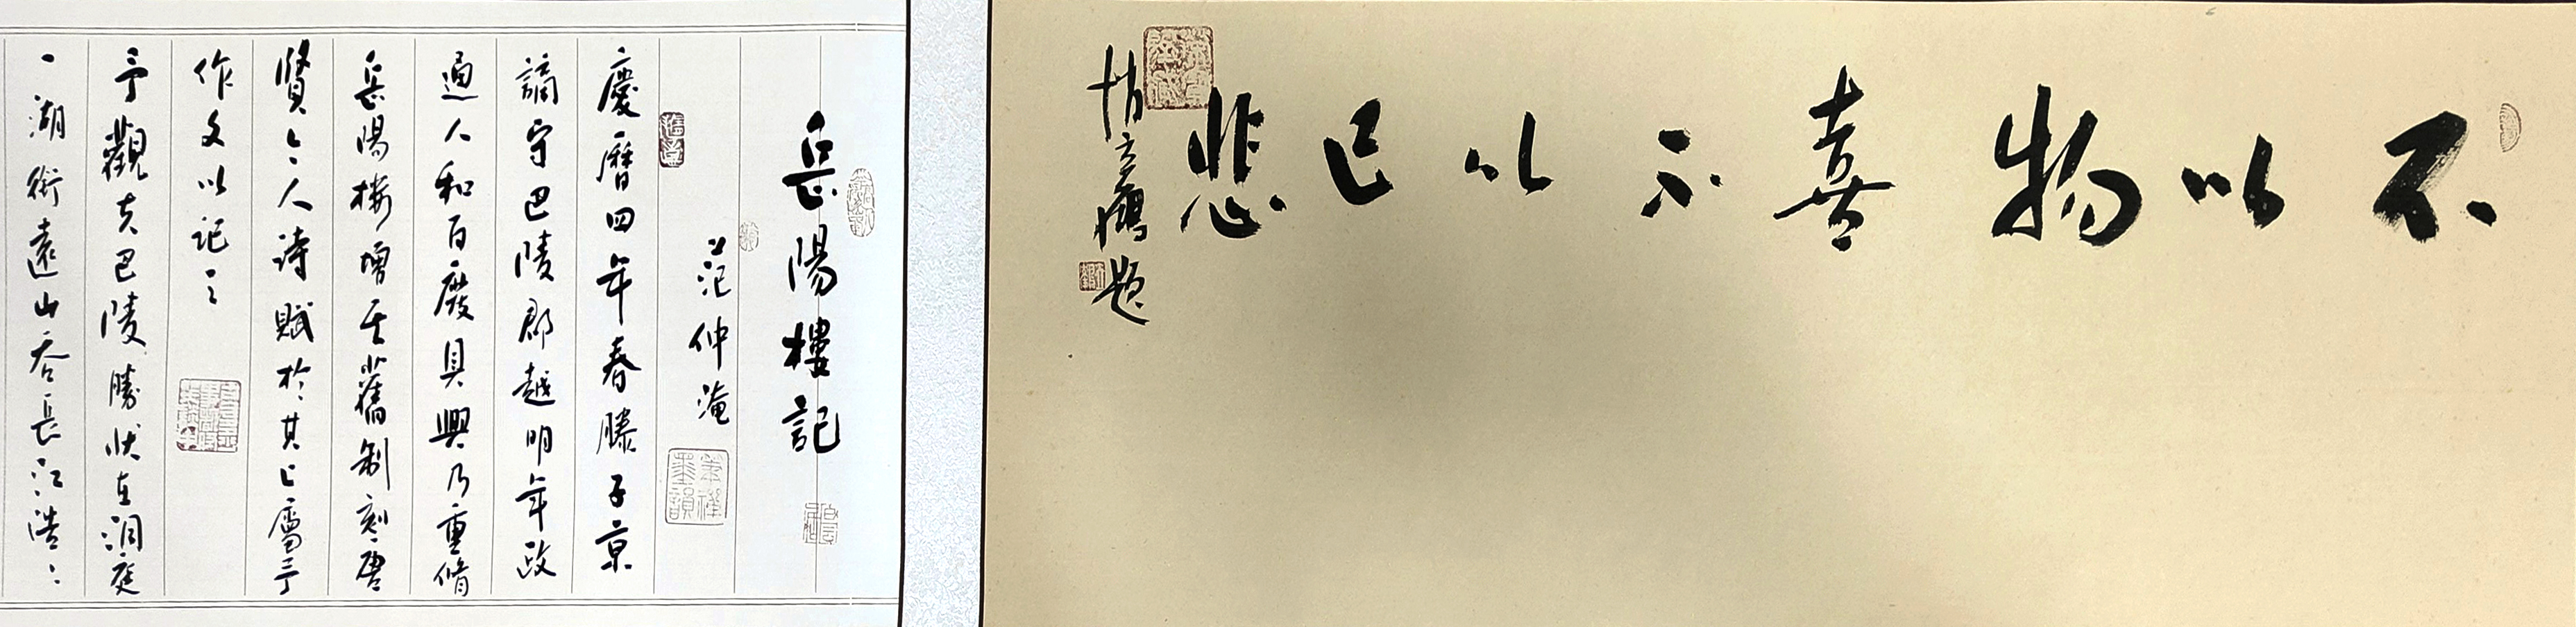 不以物喜不以己悲
題
岳陽樓記
范仲淹
慶曆四年春滕子京
謫守巴陵郡越明年政
通人和百廢具興乃重脩
岳陽樓增其舊制刻唐
賢今人詩賦於其上屬予
作文以記之
予觀夫巴陵勝狀在洞庭
一湖銜遠山吞長江浩浩